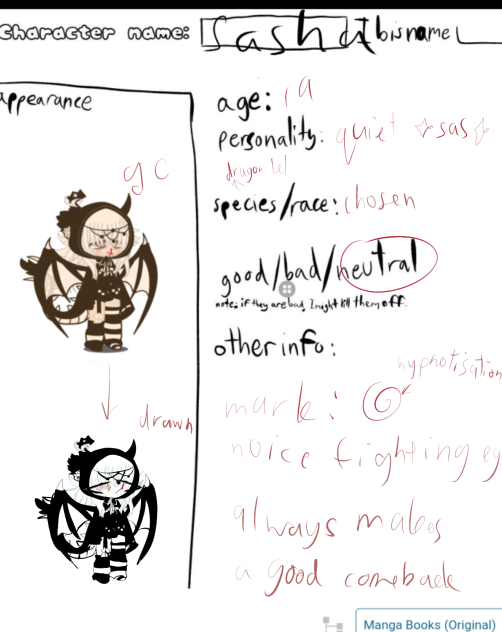 Character name: Sasha
appearance
age:
personality: quiet ✧sas✧
dragon lel
species/race: chosen
gc
good/bad/neutral
note: if they are bad, I might kill them off.
other info:
hypnotisation
mark:
drawn
noice fighting
always makes
a good comeback
Manga Books (Original)